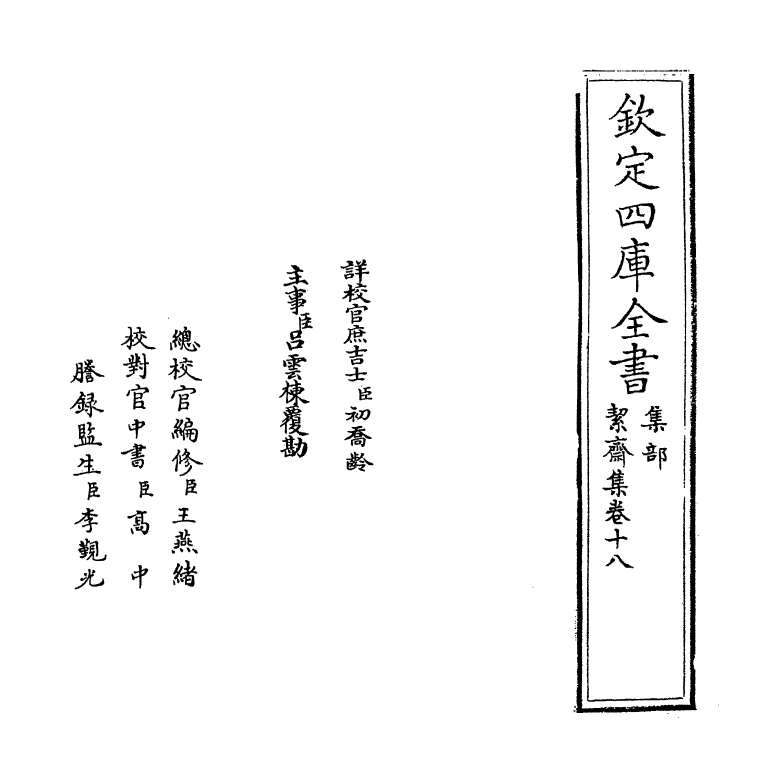 欽定四庫全書
集部
絜齋集卷十八
詳校官庶吉士臣初喬齡
主事臣呂雲棟覆勘
總校官編修臣王燕緒
校對官中書臣高中
謄録監生臣李觀光